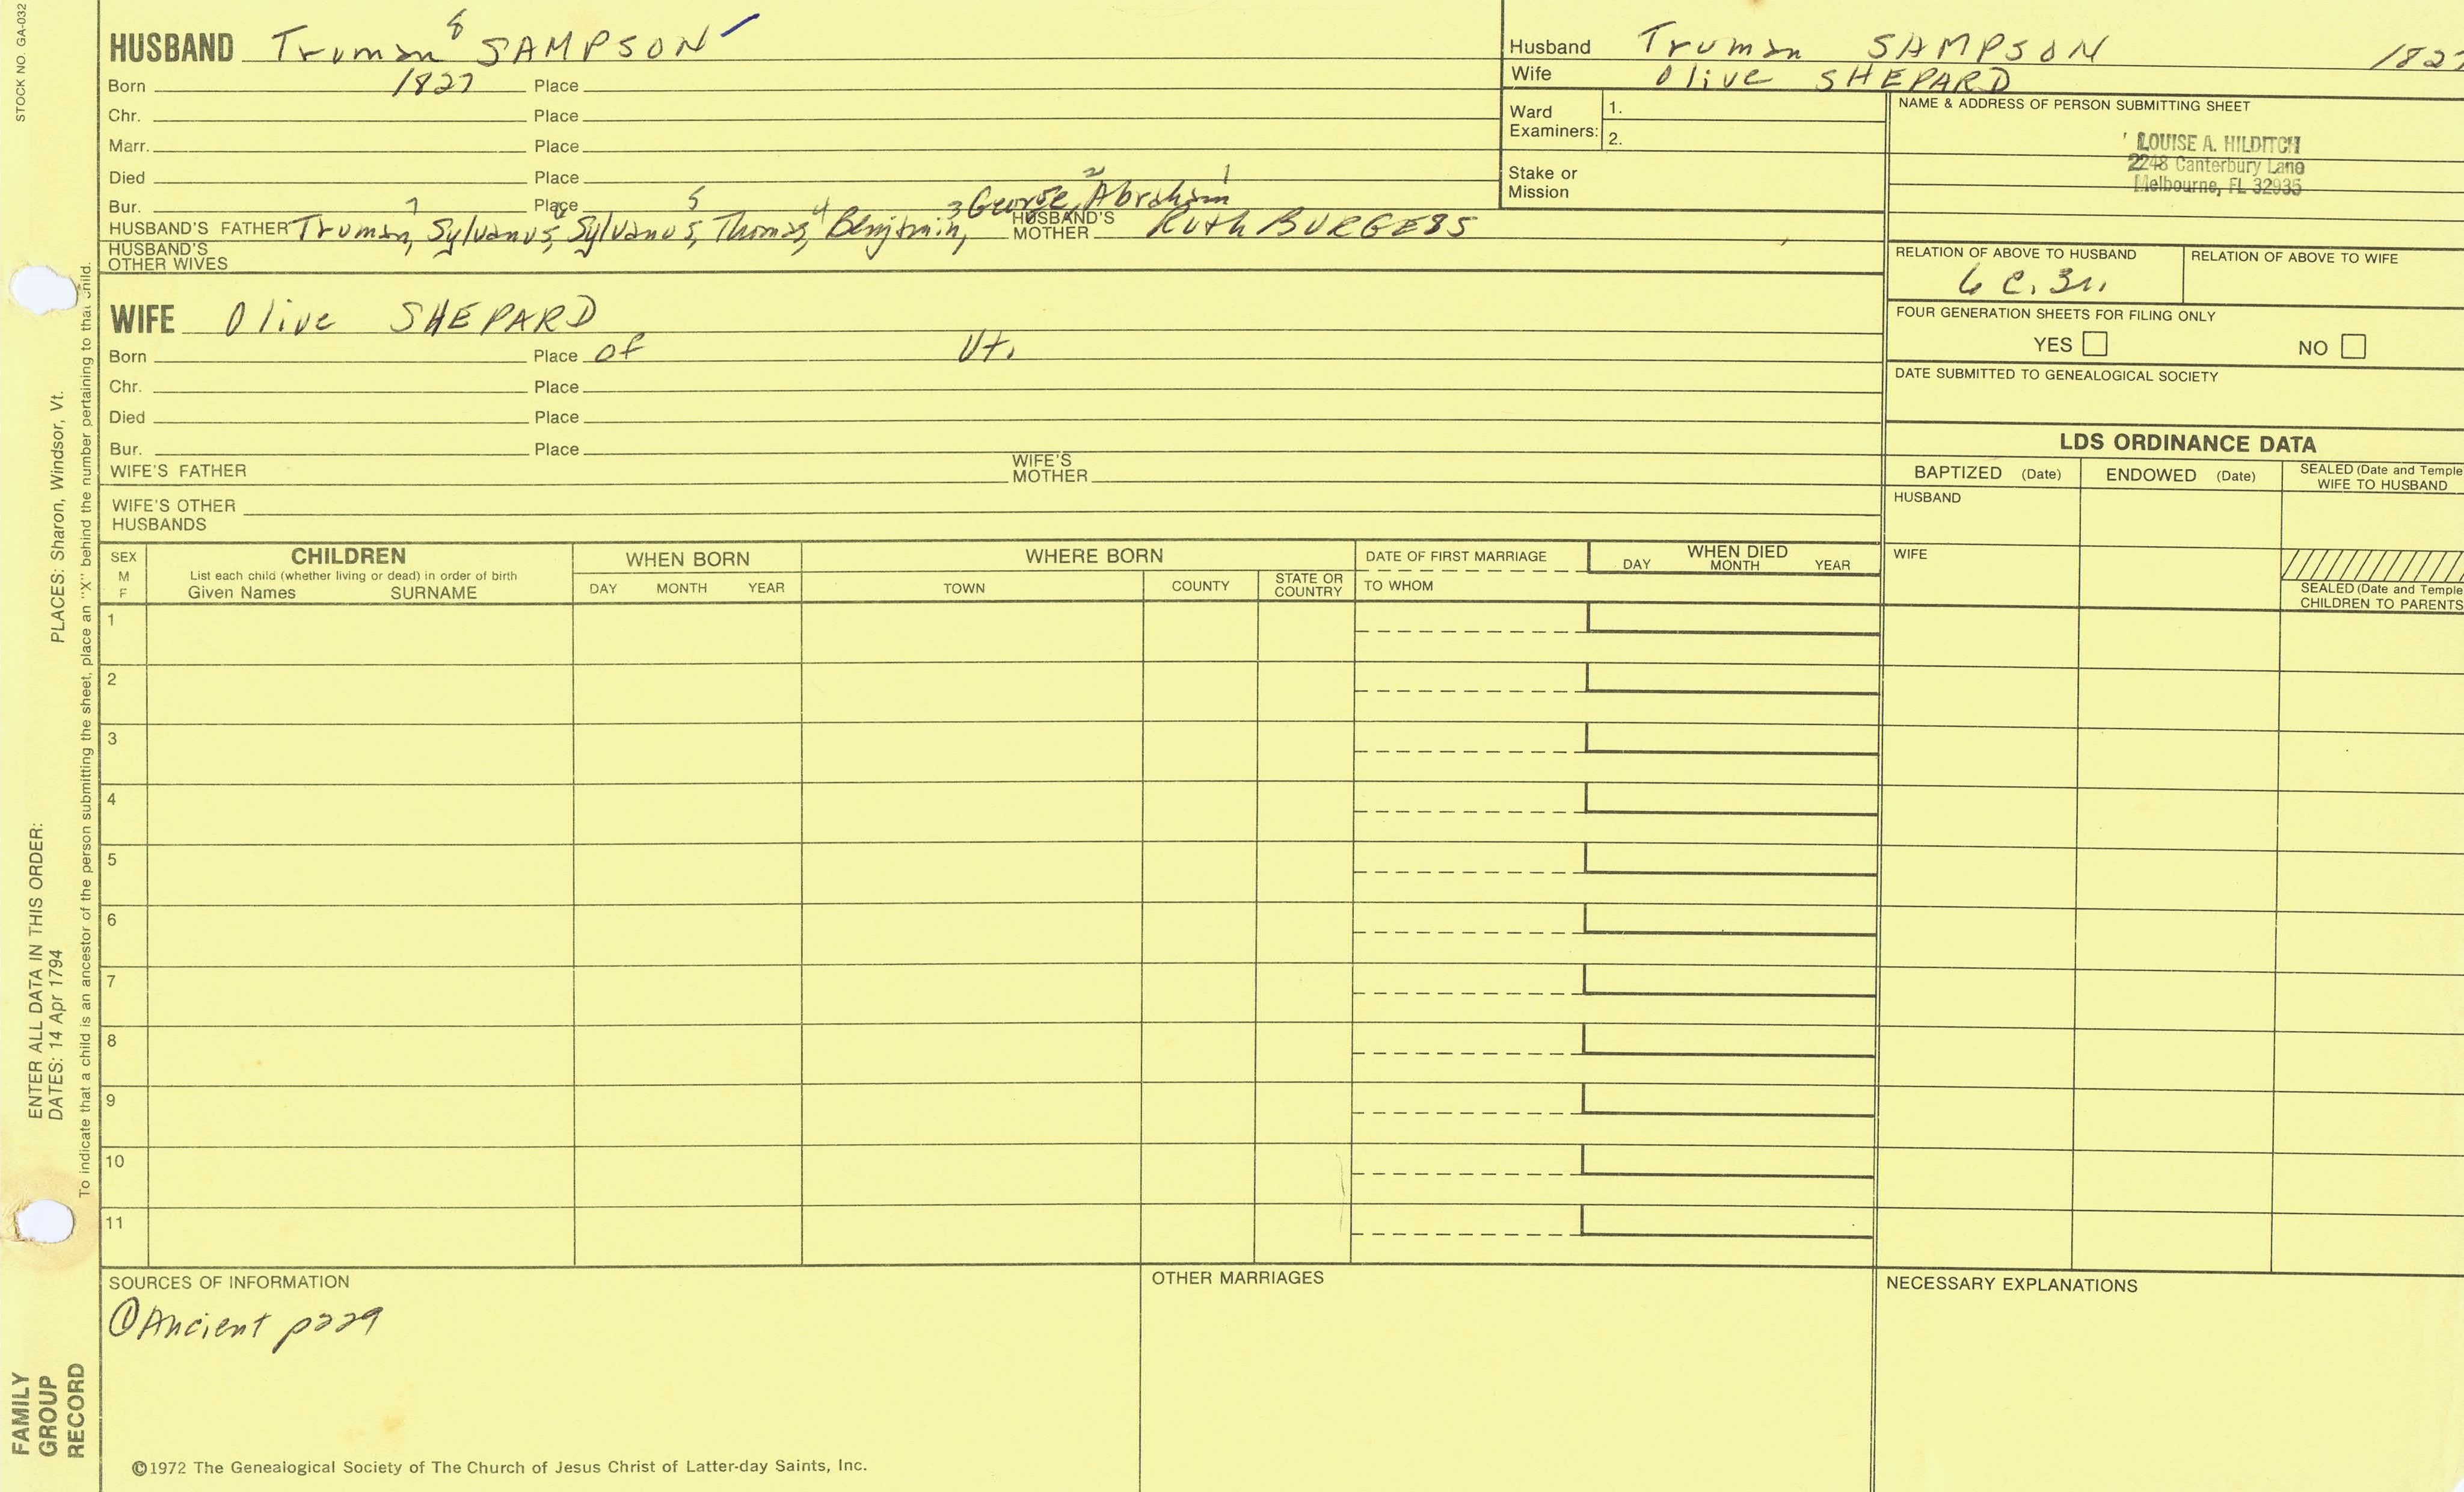 STOCK NO. GA-032
HUSBAND Truman 8 SAMPSON
Born 1827 Place
Chr. Place
Marr. Place
Died Place
Bur. Place
HUSBAND'S FATHER Truman, 7 Sylvanus, 6 Sylvanus, 5 Thomas, 4 Benjamin, 3 George, 2 Abraham 1 HUSBAND'S MOTHER Ruth BURGESS
HUSBAND'S OTHER WIVES
WIFE Olive SHEPARD
Born Place of Vt.
Chr. Place
Died Place
Bur. Place
WIFE'S FATHER WIFE'S MOTHER
WIFE'S OTHER HUSBANDS
Husband Truman SAMPSON 1827
Wife Olive SHEPARD
Ward Examiners: 1.
2.
Stake or Mission
NAME & ADDRESS OF PERSON SUBMITTING SHEET
LOUISE A. HILDITCH
2248 Canterbury Lane
Melbourne, FL 32935
RELATION OF ABOVE TO HUSBAND RELATION OF ABOVE TO WIFE
6 C. 3r.
FOUR GENERATION SHEETS FOR FILING ONLY
YES NO
DATE SUBMITTED TO GENEALOGICAL SOCIETY
LDS ORDINANCE DATA
BAPTIZED (Date) ENDOWED (Date) SEALED (Date and Temple) WIFE TO HUSBAND
HUSBAND
WIFE
SEALED (Date and Temple) CHILDREN TO PARENTS
SEX M F
CHILDREN
List each child (whether living or dead) in order of birth
Given Names SURNAME
WHEN BORN
DAY MONTH YEAR
WHERE BORN
TOWN COUNTY STATE OR COUNTRY
DATE OF FIRST MARRIAGE
TO WHOM
WHEN DIED
DAY MONTH YEAR
1
2
3
4
5
6
7
8
9
10
11
SOURCES OF INFORMATION
① Ancient p229
OTHER MARRIAGES
NECESSARY EXPLANATIONS
©1972 The Genealogical Society of The Church of Jesus Christ of Latter-day Saints, Inc.
FAMILY GROUP RECORD
ENTER ALL DATA IN THIS ORDER:
DATES: 14 Apr 1794 PLACES: Sharon, Windsor, Vt.
To indicate that a child is an ancestor of the person submitting the sheet, place an "X" behind the number pertaining to that child.